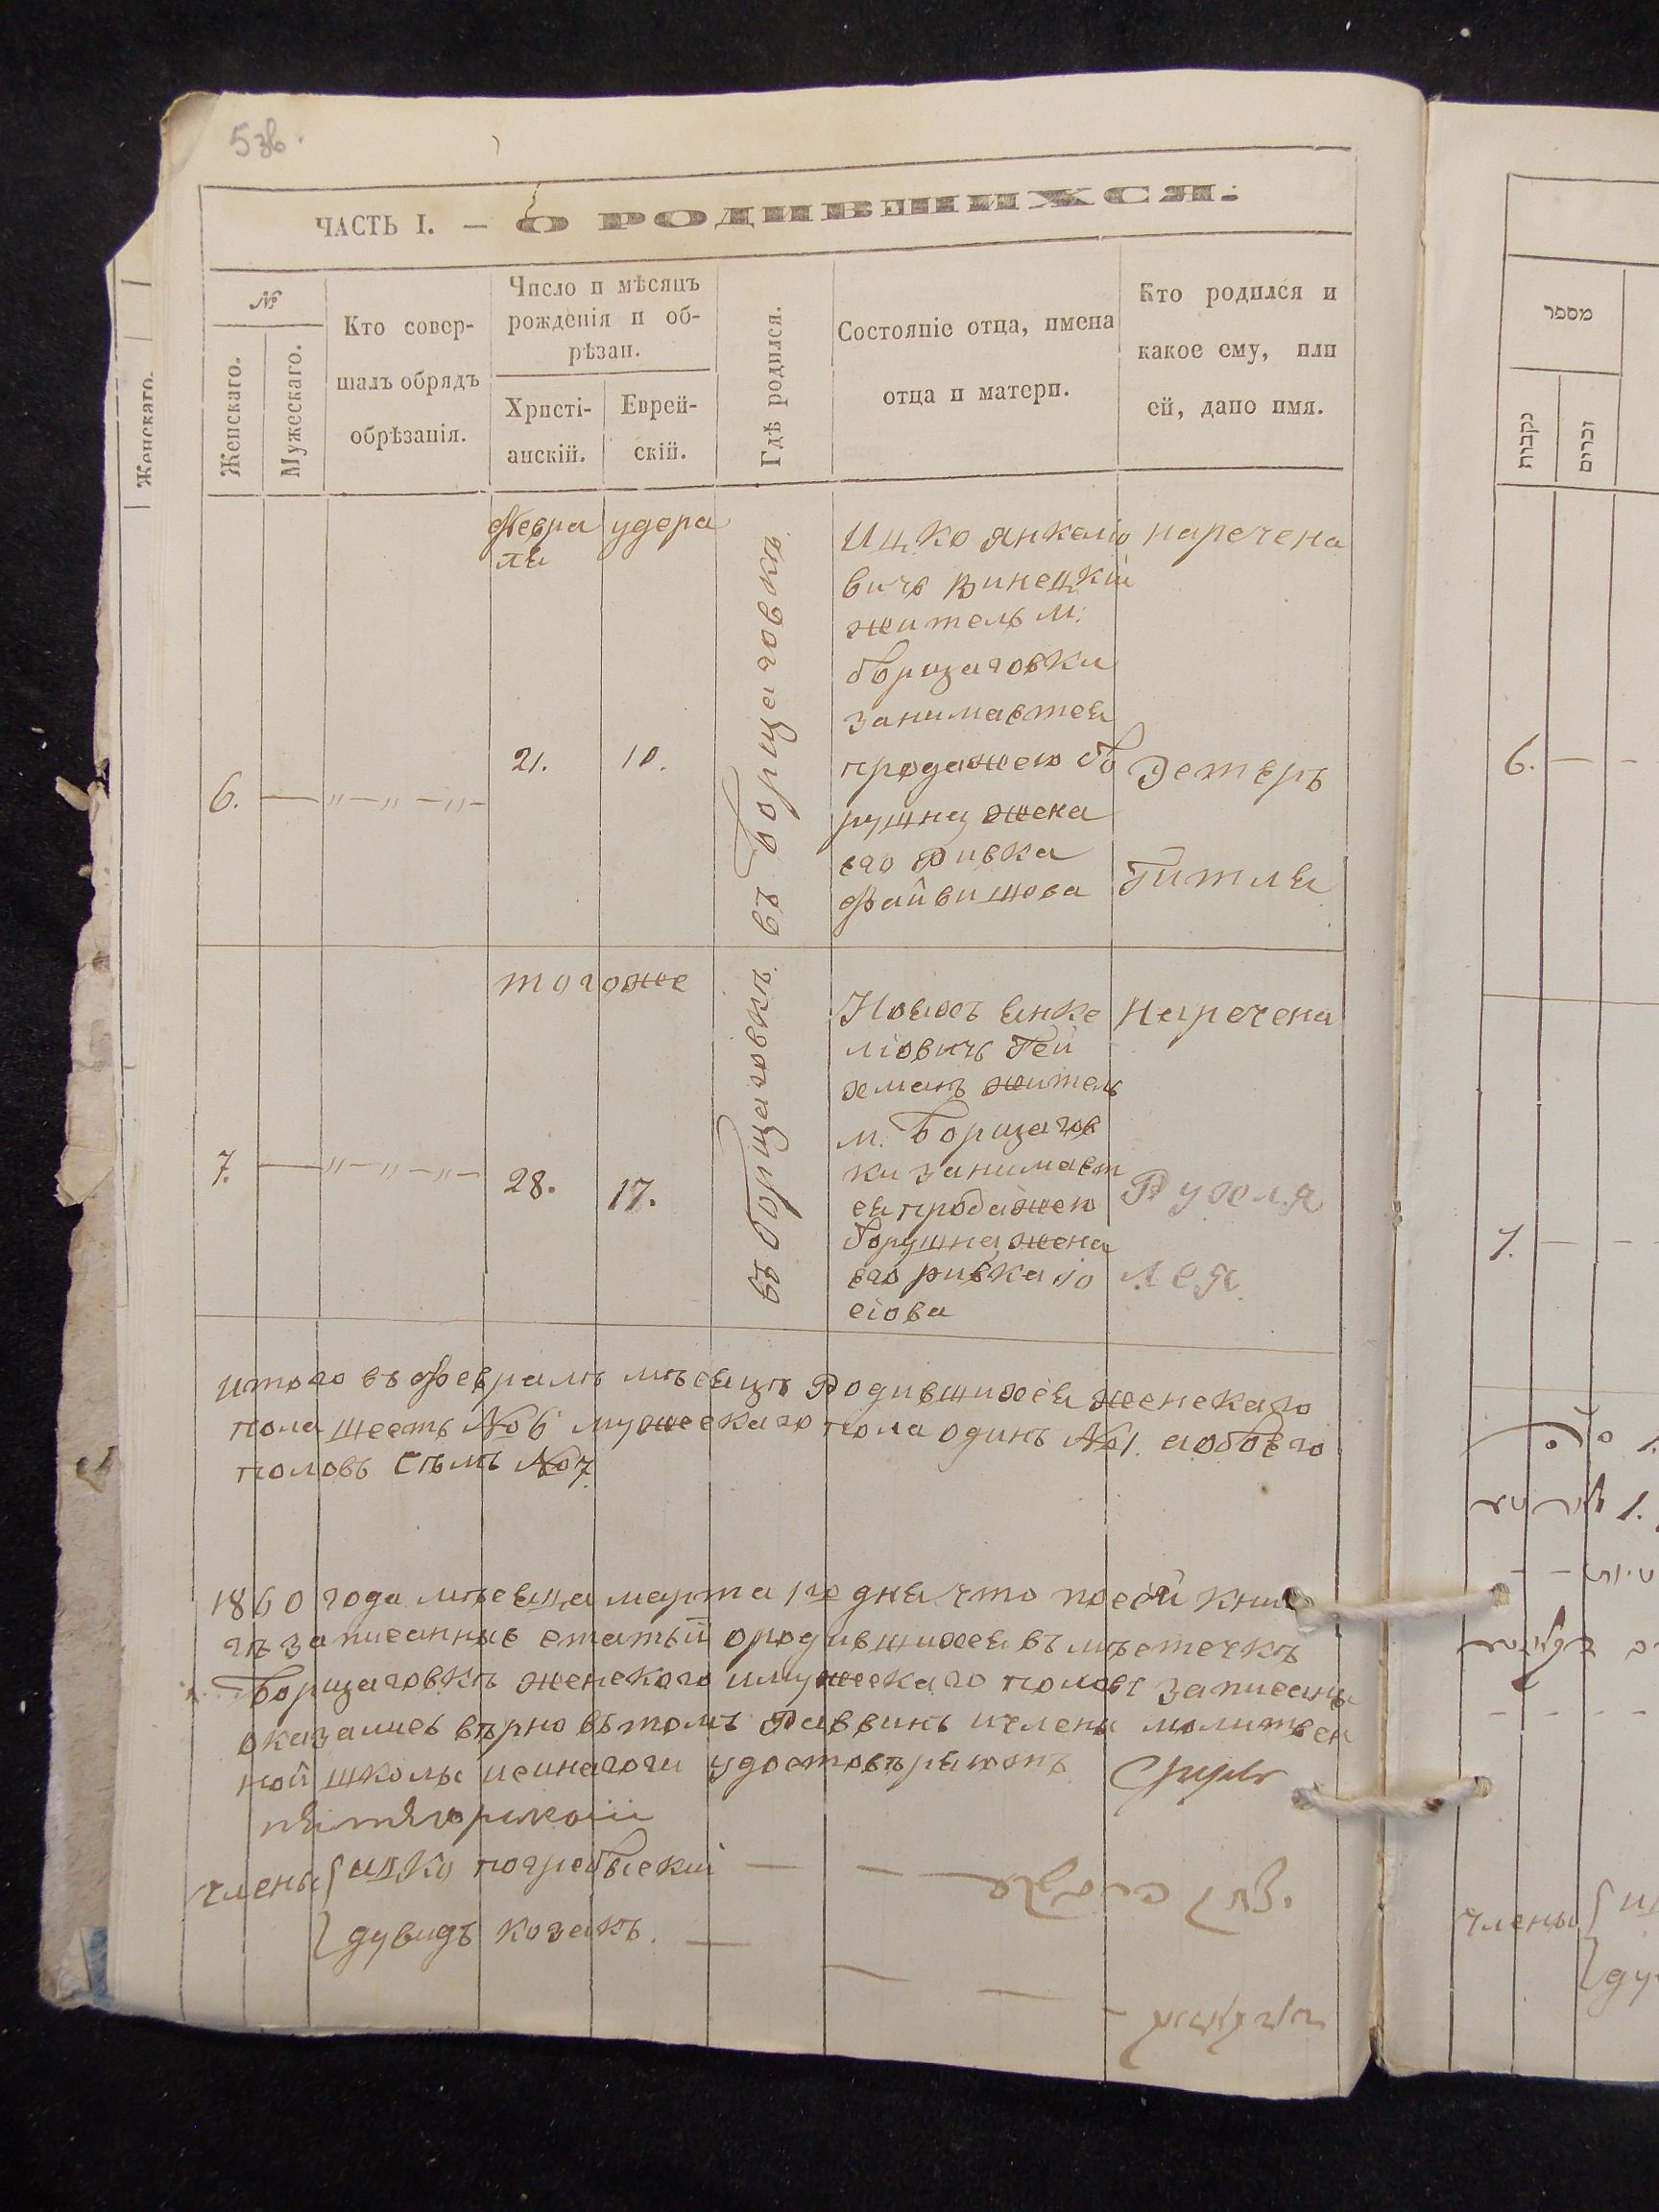 53б.
ЧАСТЬ I. — О РОДИВШИХСЯ.
№
Женскаго.
Мужескаго.
Кто совер-
шалъ обрядъ
обрѣзанія.
Число и мѣсяцъ
рожденія и об-
рѣзан.
Христі-
анскій.
Еврей-
скій.
Гдѣ родился.
Состояніе отца, имена
отца и матери.
Кто родился и
какое ему, или
ей, дано имя.
Февра
ля
удера
6.
21.
10.
въ Борщаговкѣ
Ицко Янкелю
вичъ Винецкій
житель м.
Борщаговки
занимается
продажею бо
рушна жена
его Ривка
Файвишова
наречена
Эстеръ
Гитля
7.
тогоже
28.
17.
въ Борщаговкѣ
янке
ліовичъ Гей
хманъ житель
м. Борщагов
ки занимает
ся продажею
борушна жена
его ривка іо
сіова
Наречена
Рухля
Лея
итого въ Февралѣ мѣсяцѣ Родившихся женскаго
пола шесть №6 мужескаго пола одинъ №1. а обоего
половъ сѣмъ №7
1860 года мѣсяца марта 1го дня что по сей кни
гѣ записанные статьи о родившихся въ мѣстечкѣ
Борщаговкѣ женского и мужескаго половъ записаны
оказались вѣрно въ томъ Раввинъ и члены молитвен
ной школы и синагоги удостовѣряютъ
члены ицко погребыский
дувидъ козакъ.
Женскаго.
מספר
נקבות
זכרים
6.
7.
члены